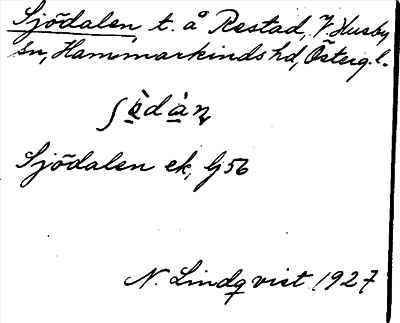 Sjödalen, t. å Restad, V. Husby
sn, Hammarkinds hd, Österg. l.
ʃö̀dàn
Sjödalen ek, G 56
N. Lindqvist 1927